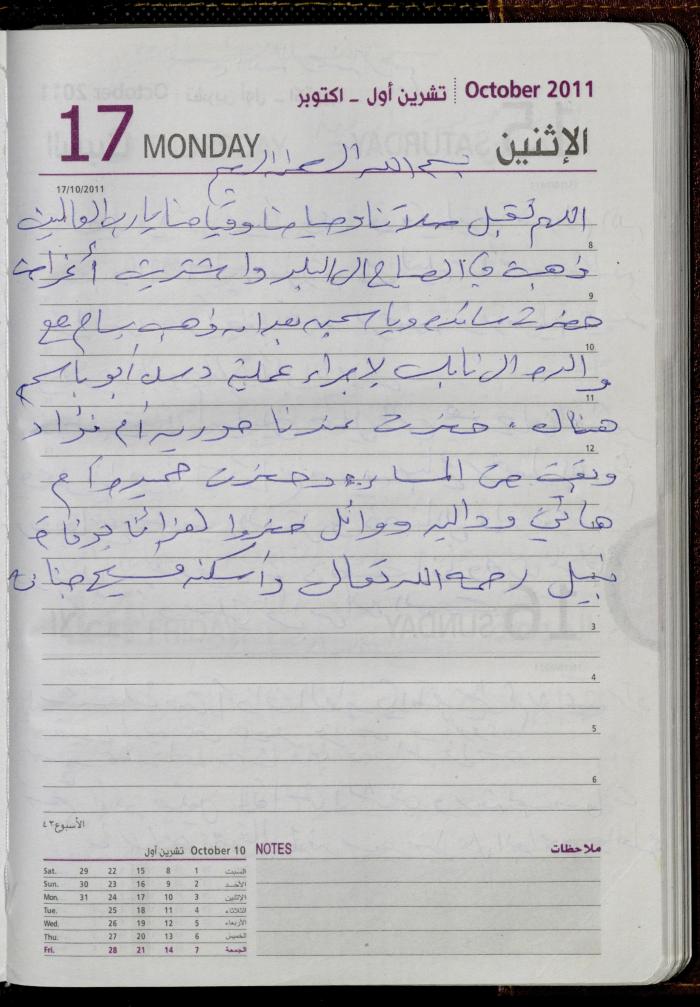 October 2011 تشرين أول ـ اكتوبر
17 MONDAY الإثنين
بسم الله الرحمن الرحيم
17/10/2011
اللهم تقبل صلاتنا وصيامنا وقيامنا يا رب العالمين
8
ذهبت في الصباح الى البلد واشتريت أغراض
9
حضرت سائده وياسمين بعد ان ذهب بسام مع
10
والده الى نابلس لإجراء عملية دسك أبو باسم
11
هناك . حضرت عندنا حوريه أم فؤاد
12
وبقيت حتى المساء وحضرت حميده أم
هاني وداليه ووائل حضروا لعزائنا بوفاة
نبيل رحمه الله تعالى وأسكنه فسيح جناته
3
4
5
6
الأسبوع ٤٣
October 10 تشرين أول
Sat. 29 22 15 8 1 السبت
Sun. 30 23 16 9 2 الأحد
Mon. 31 24 17 10 3 الإثنين
Tue. 25 18 11 4 الثلاثاء
Wed. 26 19 12 5 الأربعاء
Thu. 27 20 13 6 الخميس
Fri. 28 21 14 7 الجمعة
NOTES ملاحظات